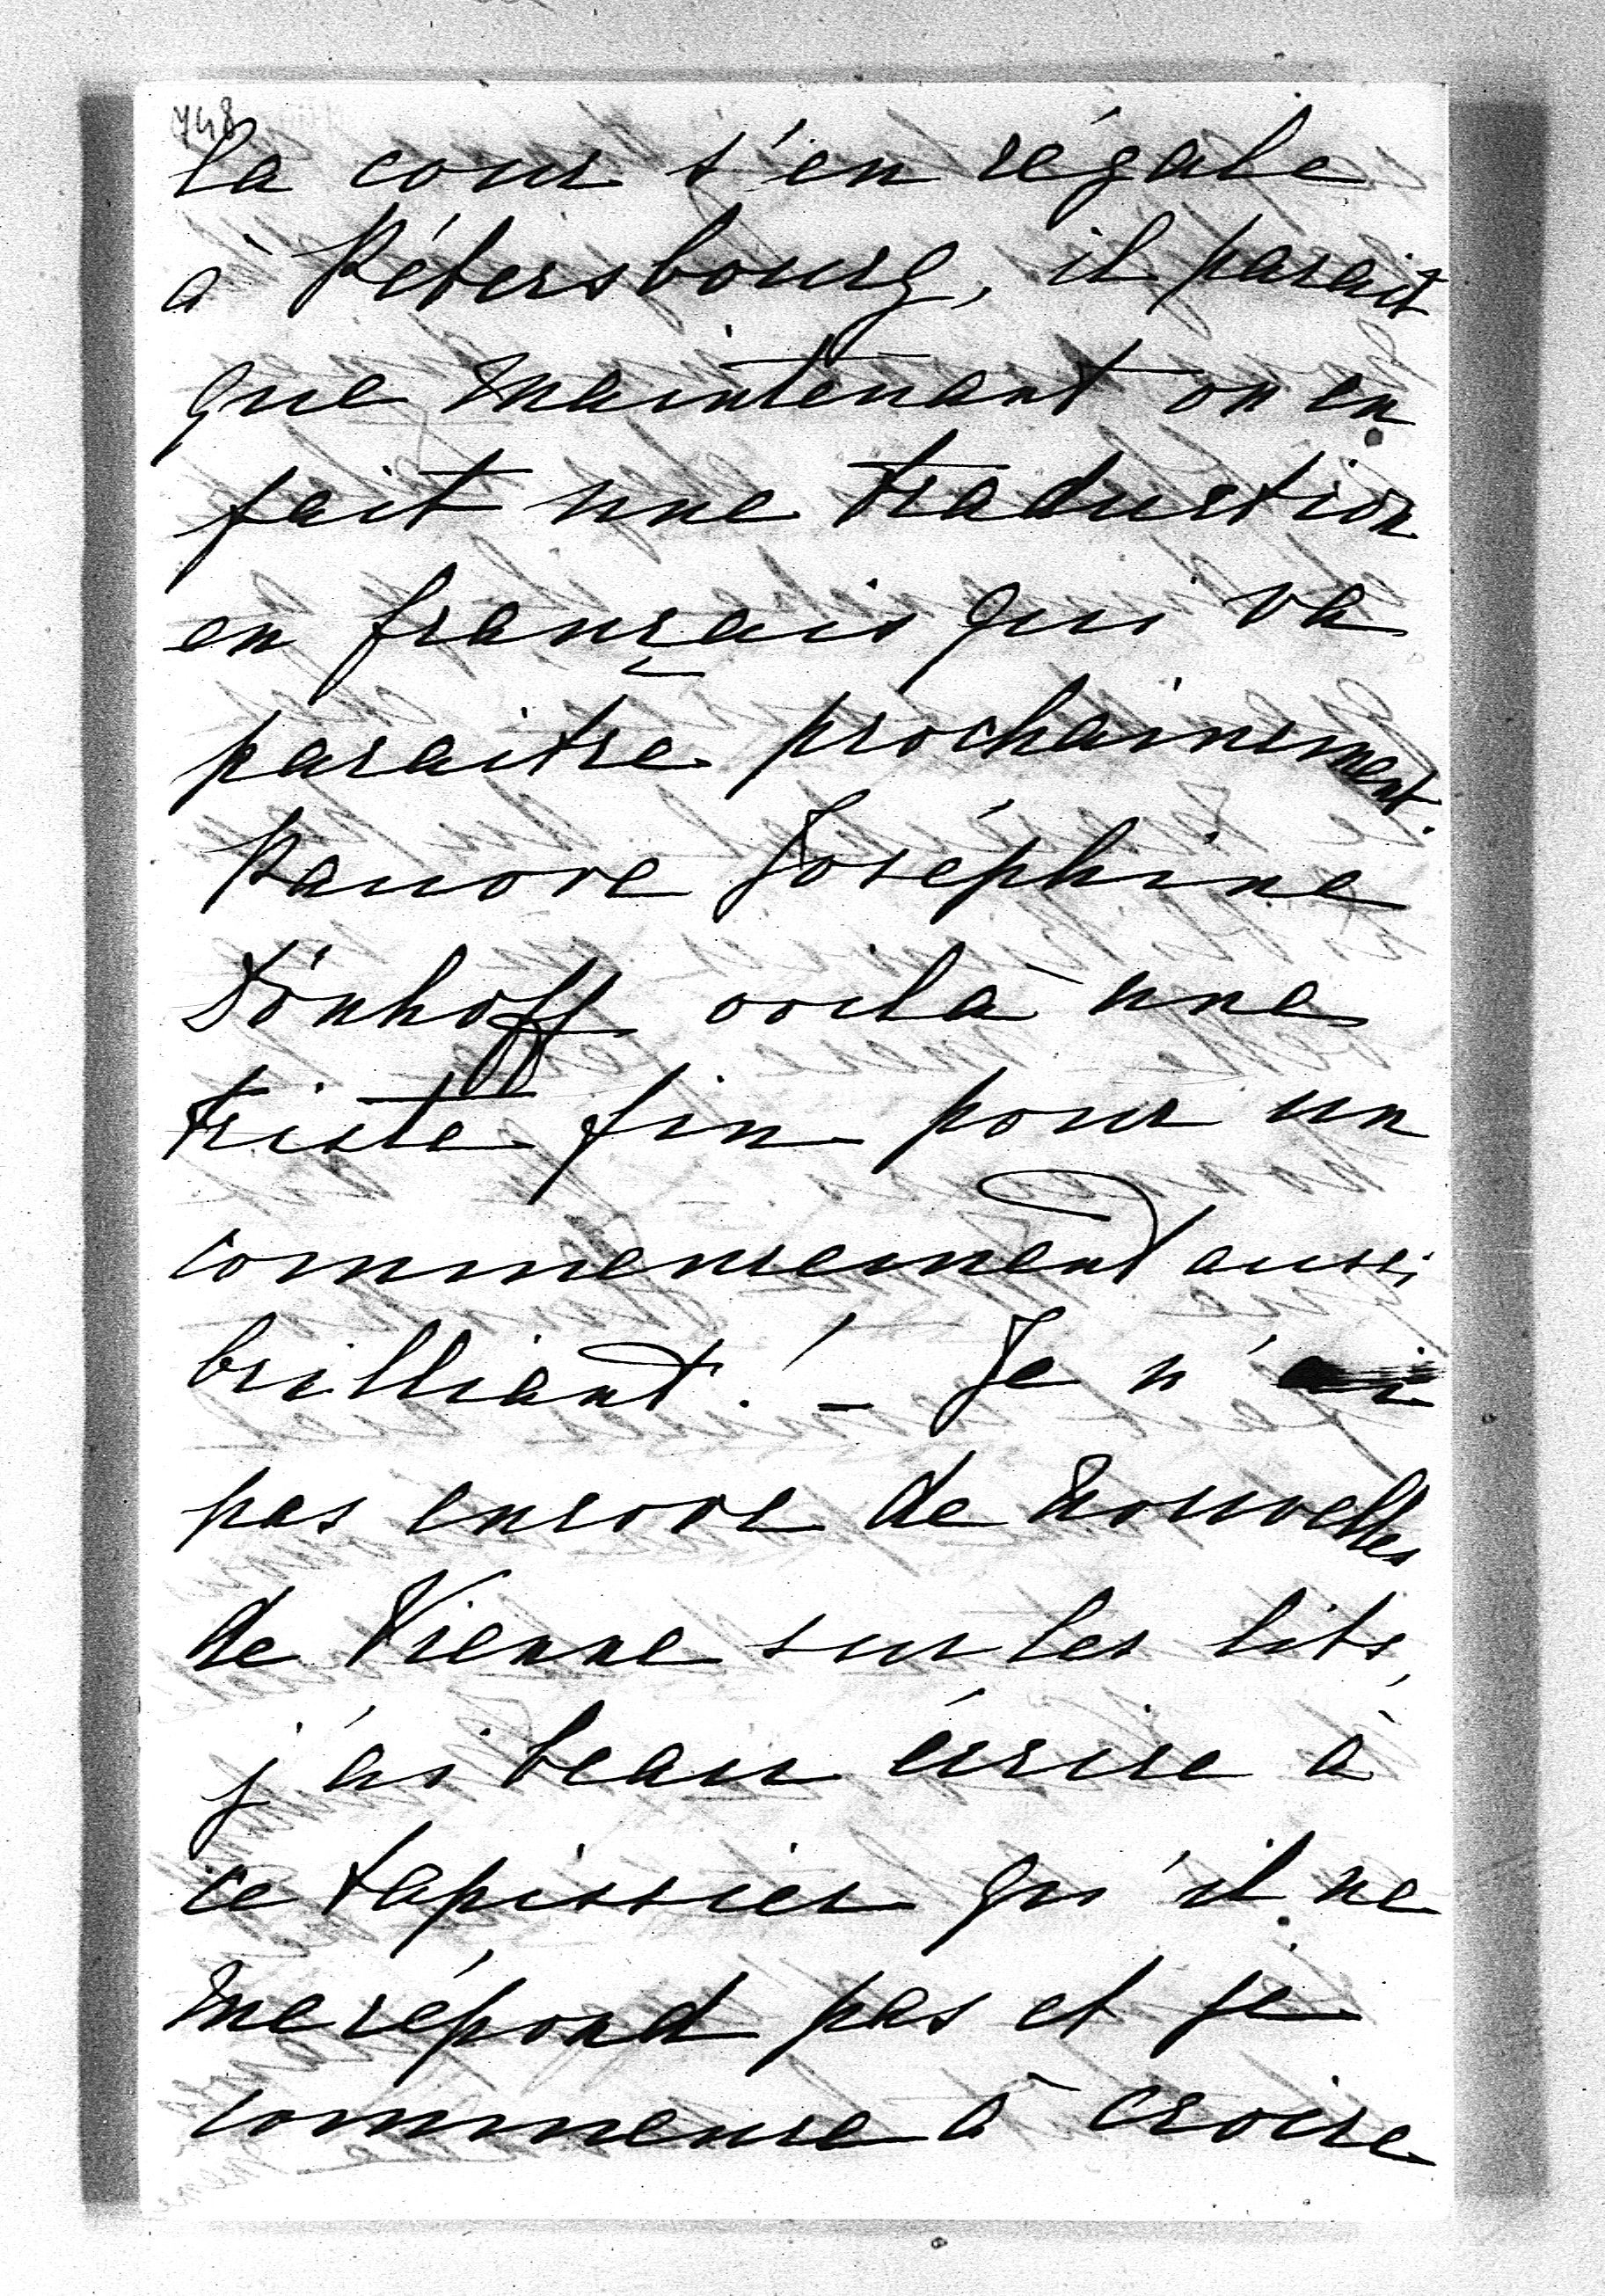 748
la cour s'en régale
à Pétersbourg, il parait
que maintenant on en
fait une traduction
en français qui va
paraitre prochainement.
Pauvre Joséphine
Dönhoff voilà une
triste fin pour un
commencement aussi
brilliant! – Je n'ai
pas encore de nouvelles
de Vienne sur les lits,
j'ai beau écrire à
ce tapissier qu'il ne
me répond pas et je
commence à croire